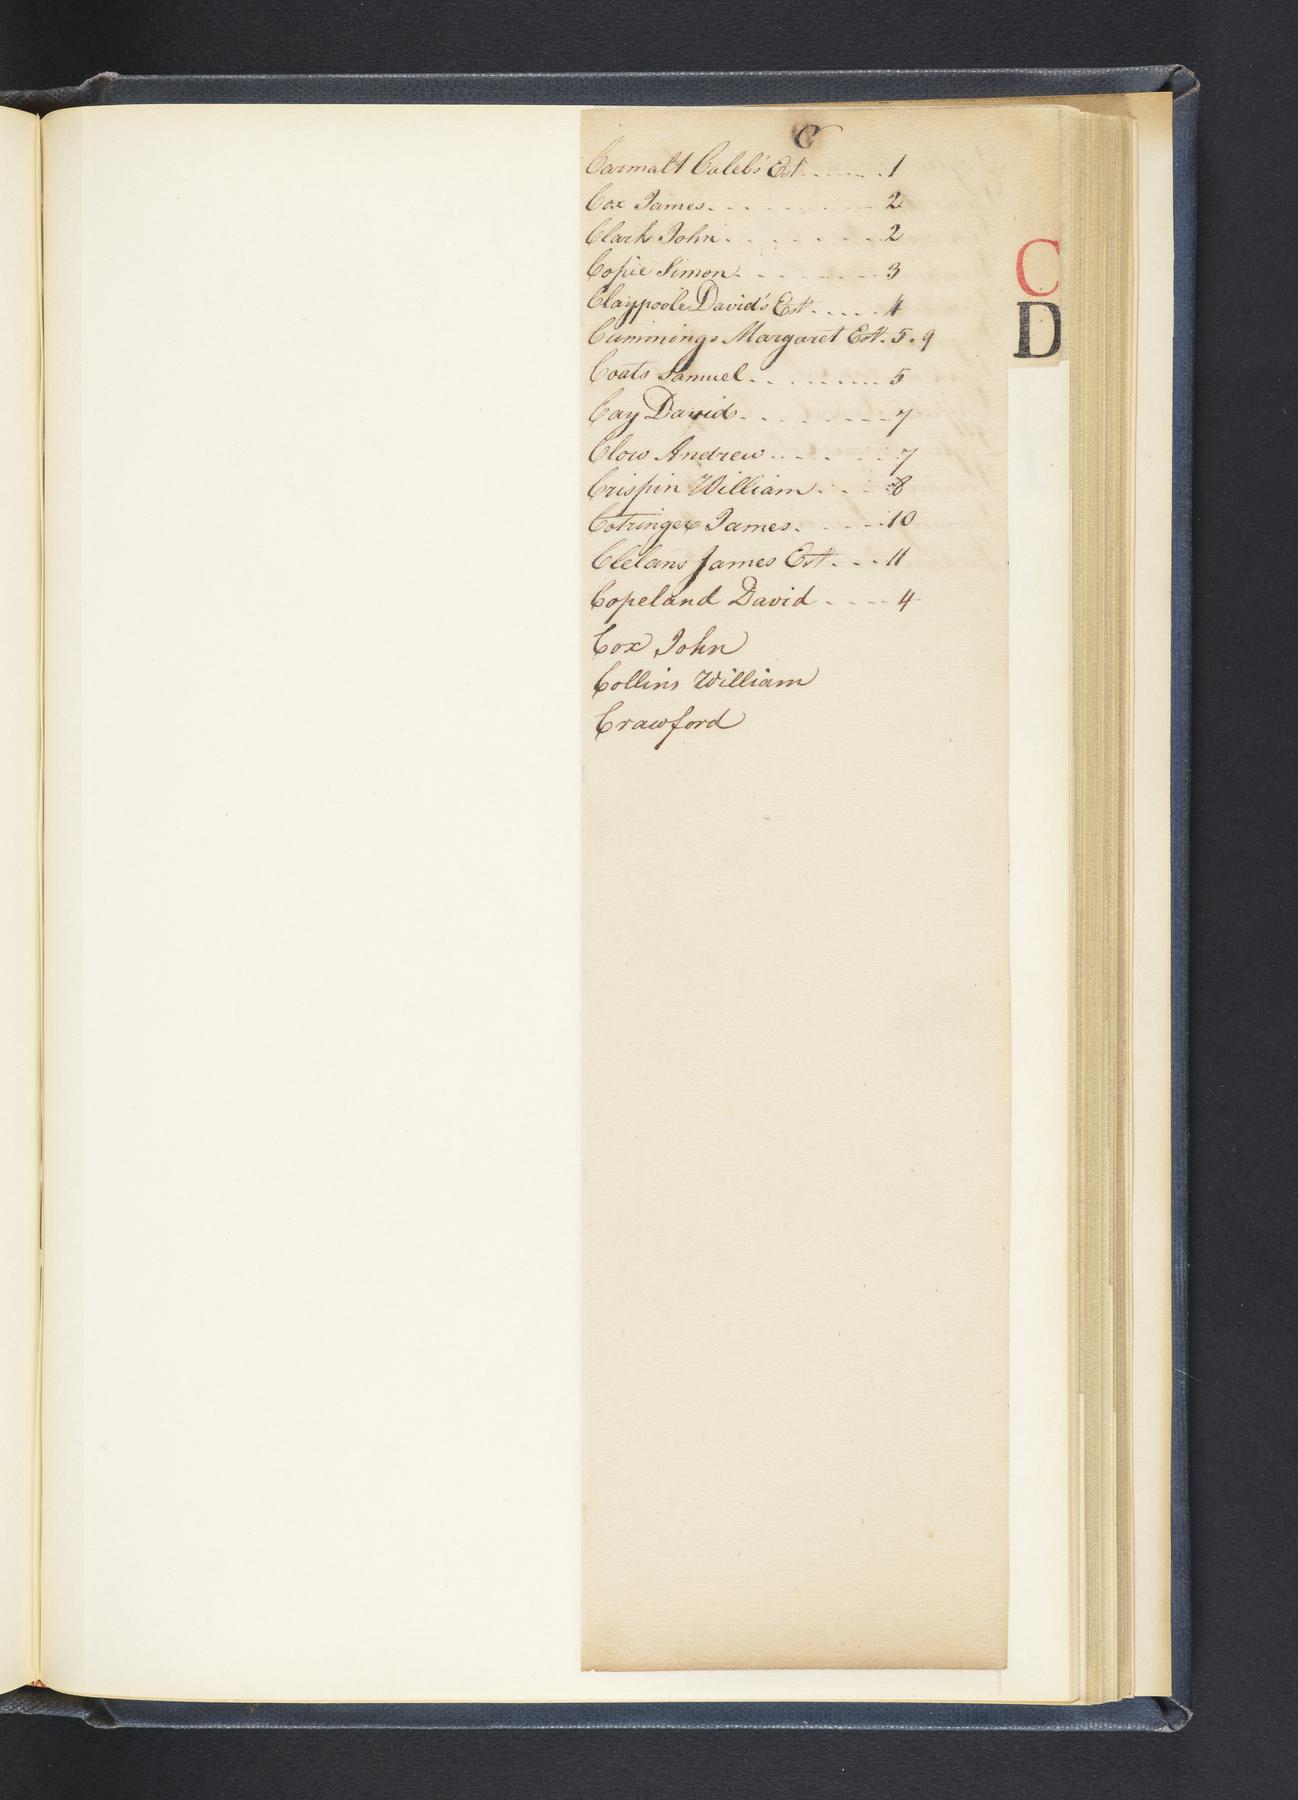 C
Carmalt Caleb's Est ....... 1
Cox James. - - - - - - - - 2
Clark John - - - - - - - 2
Copie Simon - - - - - - - 3
Claypoole David's Est. .... 4
Cummings Margaret Est. 5. 9
Coats Samuel .......... 5
Cay David - - - - - - - - 7
Clow Andrew - - - - - - - 7
Crispin William - - - 8
Cotringer James. - - - - 10
Clelans James Est. - - 11
Copeland David - - - - 4
Cox John
Collins William
Crawford
C
D